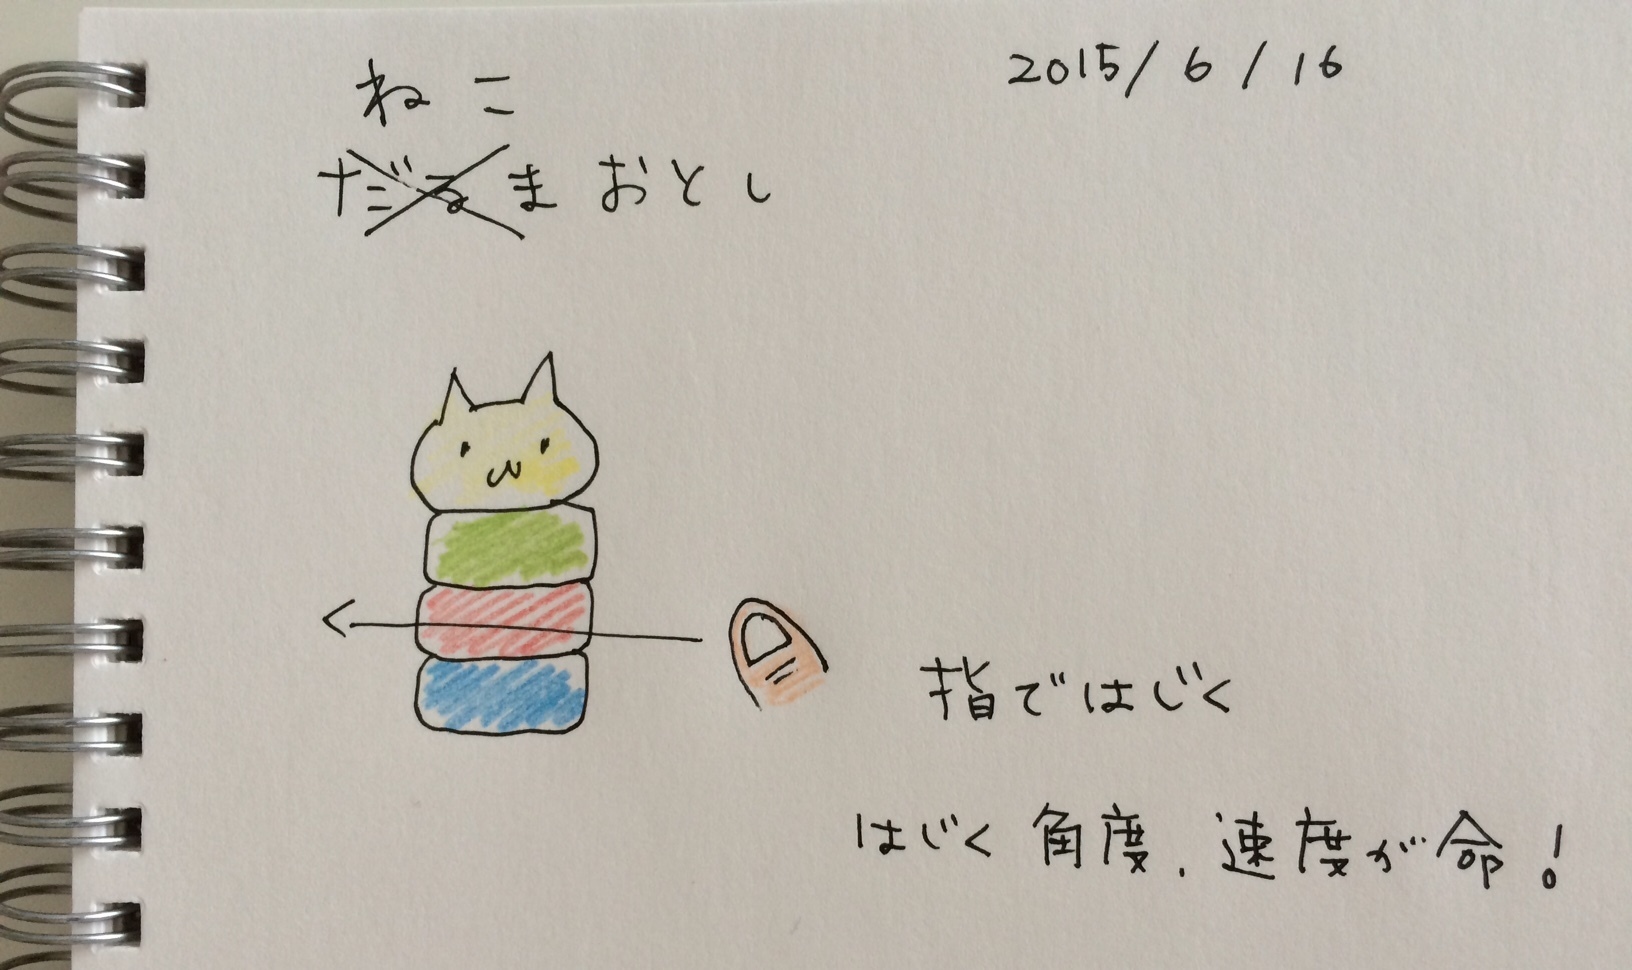 ねこ
2015/6/16
だるまおとし
指ではじく
はじく角度、速度が命!